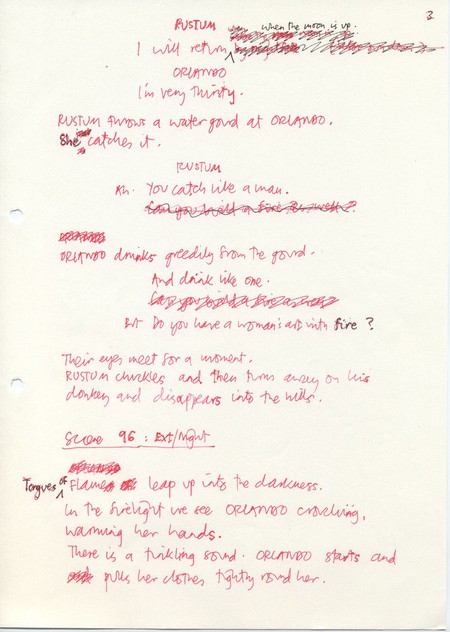 3
RUSTUM
when the moon is up.
I will return
ORLANDO
I'm very thirsty.
RUSTUM throws a water gourd at ORLANDO.
She catches it.
RUSTUM
Ah. You catch like a man.
Can you build a fire as well?
ORLANDO drinks greedily from the gourd.
And drink like one.
Can you build a fire as well
But Do you have a woman's art with fire?
Their eyes meet for a moment.
RUSTUM chuckles and then turns away on his
donkey and disappears into the hills.
Scene 96: EXT/Night
Tongues of Flame leap up into the darkness.
In the firelight we see ORLANDO crouching,
warming her hands.
There is a tinkling sound. ORLANDO starts and
pulls her clothes tightly round her.